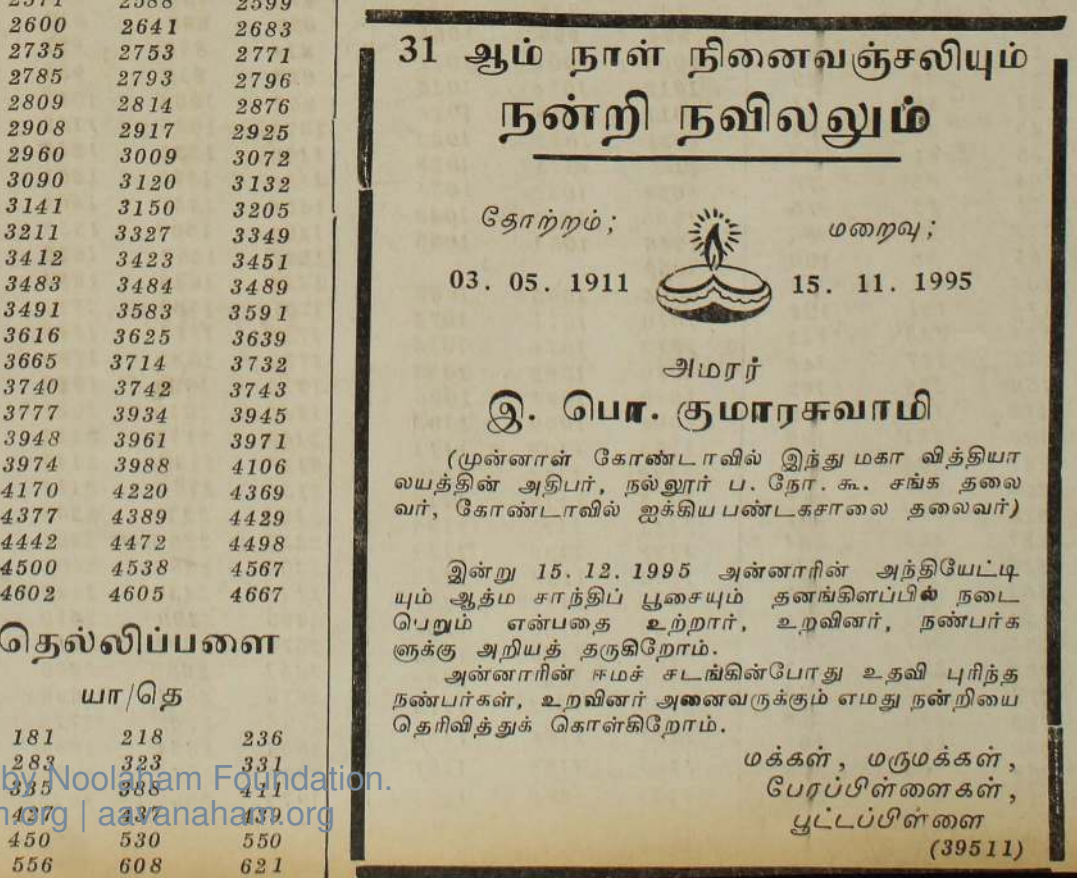 2371 2588 2599
2600 2641 2683
2735 2753 2771
2785 2793 2796
2809 2814 2876
2908 2917 2925
2960 3009 3072
3090 3120 3132
3141 3150 3205
3211 3327 3349
3412 3423 3451
3483 3484 3489
3491 3583 3591
3616 3625 3639
3665 3714 3732
3740 3742 3743
3777 3934 3945
3948 3961 3971
3974 3988 4106
4170 4220 4369
4377 4389 4429
4442 4472 4498
4500 4538 4567
4602 4605 4667
தெல்லிப்பளை
யா/தெ
181 218 236
283 323 331
335 388 411
437 437 439
450 530 550
556 608 621
31 ஆம் நாள் நினைவஞ்சலியும்
நன்றி நவிலலும்
தோற்றம்; மறைவு;
03. 05. 1911 15. 11. 1995
அமரர்
இ. பொ. குமாரசுவாமி
(முன்னாள் கோண்டாவில் இந்து மகா வித்தியா
லயத்தின் அதிபர், நல்லூர் ப. நோ. கூ. சங்க தலை
வர், கோண்டாவில் ஐக்கிய பண்டகசாலை தலைவர்)
இன்று 15. 12. 1995 அன்னாரின் அந்தியேட்டி
யும் ஆத்ம சாந்திப் பூசையும் தனங்கிளப்பில் நடை
பெறும் என்பதை உற்றார், உறவினர், நண்பர்க
ளுக்கு அறியத் தருகிறோம்.
அன்னாரின் ஈமச் சடங்கின்போது உதவி புரிந்த
நண்பர்கள், உறவினர் அனைவருக்கும் எமது நன்றியை
தெரிவித்துக் கொள்கிறோம்.
மக்கள், மருமக்கள்,
பேரப்பிள்ளைகள்,
பூட்டப்பிள்ளை
(39511)
by Noolaham Foundation.
n.org | aavanaham.org